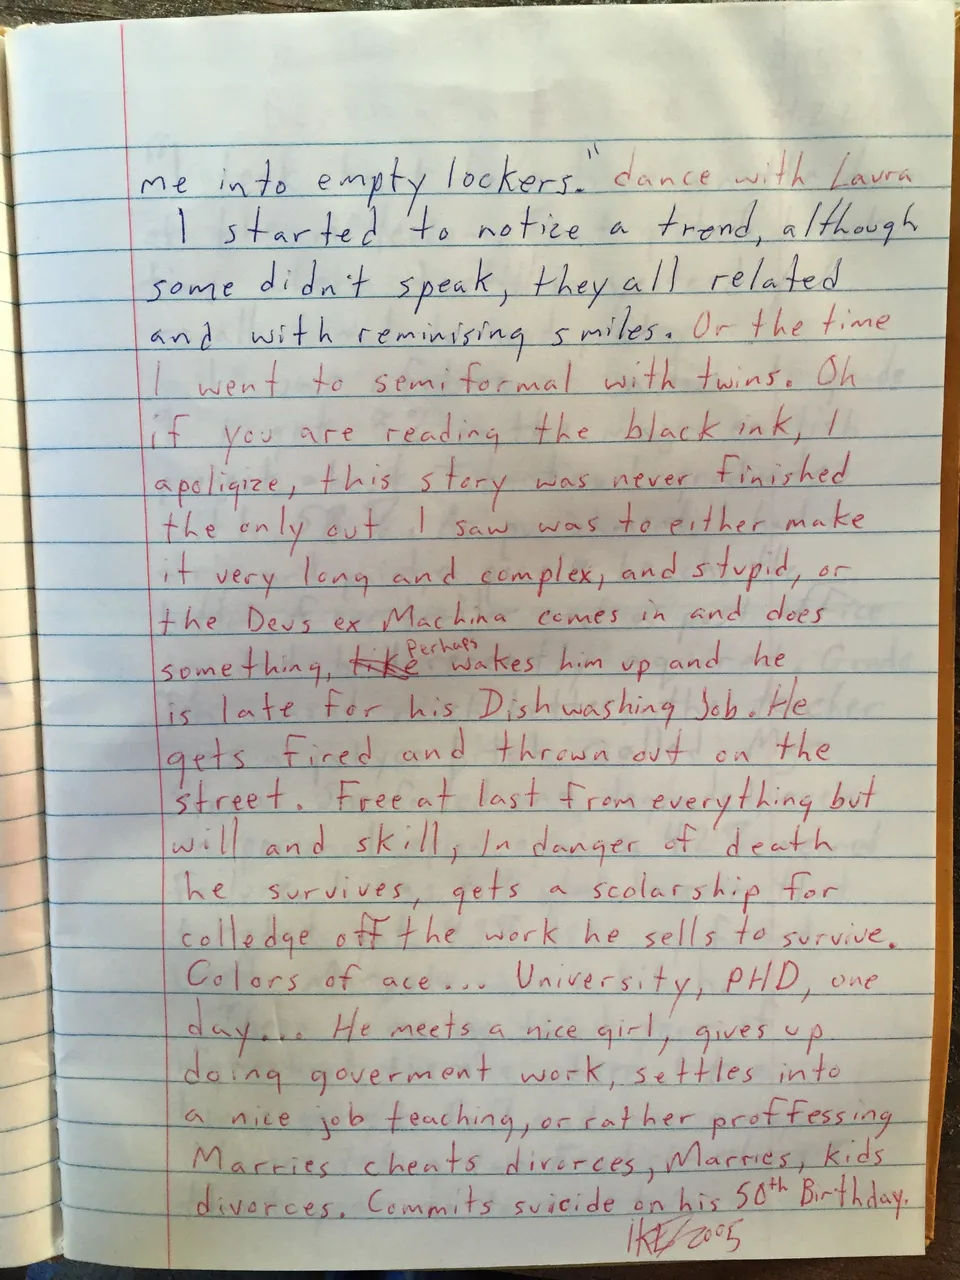 me into empty lockers." dance with Laura
I started to notice a trend, although
some didn't speak, they all related
and with reminising smiles. Or the time
I went to semi formal with twins. Oh
if you are reading the black ink, I
apoligize, this story was never finished
the only out I saw was to either make
it very long and complex, and stupid, or
the Deus ex Machina comes in and does
something, like Perhaps wakes him up and he
is late for his Dishwashing Job. He
gets fired and thrown out on the
street. Free at last from everything but
will and skill, In danger of death
he survives, gets a scolarship for
colledge off the work he sells to survive.
Colors of ace... University, PHD, one
day... He meets a nice girl, gives up
doing goverment work, settles into
a nice job teaching, or rather proffessing
Marries cheats divorces, Marries, kids
divorces. Commits suicide on his 50th Birthday.
2005